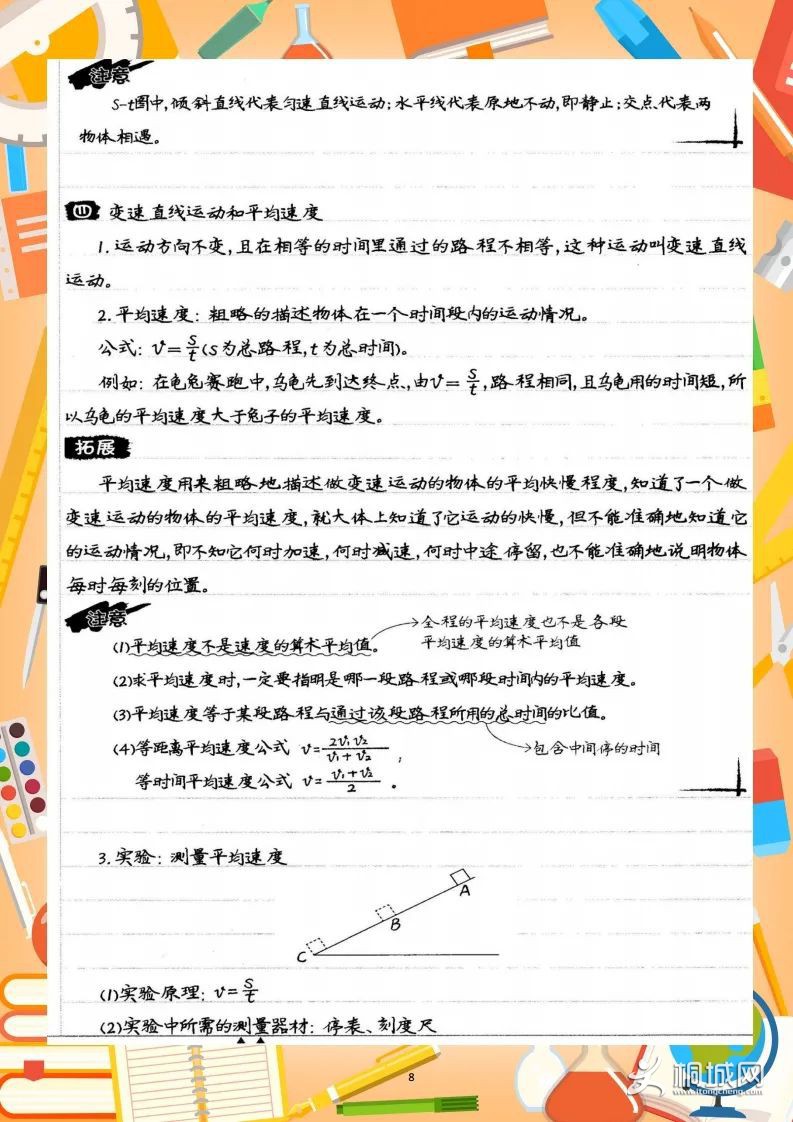 注意
S-t图中,倾斜直线代表匀速直线运动;水平线代表原地不动,即静止;交点代表两
物体相遇。
四 变速直线运动和平均速度
1.运动方向不变,且在相等的时间里通过的路程不相等,这种运动叫变速直线
运动。
2.平均速度:粗略的描述物体在一个时间段内的运动情况。
公式:v=s/t(s为总路程,t为总时间)。
例如:在龟兔赛跑中,乌龟先到达终点,由v=s/t,路程相同,且乌龟用的时间短,所
以乌龟的平均速度大于兔子的平均速度。
拓展
平均速度用来粗略地描述做变速运动的物体的平均快慢程度,知道了一个做
变速运动的物体的平均速度,就大体上知道了它运动的快慢,但不能准确地知道它
的运动情况,即不知它何时加速,何时减速,何时中途停留,也不能准确地说明物体
每时每刻的位置。
注意
(1)平均速度不是速度的算术平均值。
全程的平均速度也不是各段
平均速度的算术平均值
(2)求平均速度时,一定要指明是哪一段路程或哪段时间内的平均速度。
(3)平均速度等于某段路程与通过该段路程所用的总时间的比值。
包含中间停的时间
(4)等距离平均速度公式 v=2v₁v₂/(v₁+v₂),
等时间平均速度公式 v=(v₁+v₂)/2。
3.实验:测量平均速度
A
B
C
(1)实验原理:v=s/t
(2)实验中所需的测量器材:停表、刻度尺
8
桐城网
www.itongcheng.com